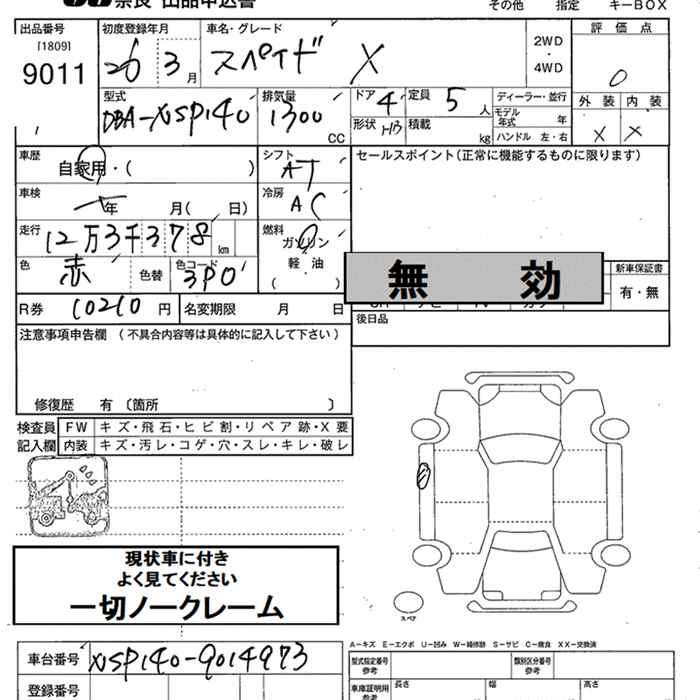 奈良 出品申込書
その他 指定 キーBOX
出品番号 [1809] 9011
初度登録年月 26年 3月
車名・グレード スペイド X
2WD・4WD
評価点 0
外装 × 内装 ×
型式 DBA-NSP140
排気量 1300 CC
ドア 4 定員 5 人
形状 HB 積載 kg
ディーラー・並行
モデル年式 年
ハンドル 左・右
車歴 自家用・( )
シフト AT
セールスポイント(正常に機能するものに限ります)
車検 年 月( 日)
冷房 AC
走行 12万3千378 km
燃料 ガソリン 軽・油 ( )
色 赤 色替 色コード 3P0
無 効
新車保証書 有・無
R券 10210 円 名変期限 月 日
後日品
注意事項申告欄 (不具合内容等は具体的に記入して下さい)
修復歴 有 〔箇所 〕
検査員記入欄
FW キズ・飛石・ヒビ割・リペア跡・X要
内装 キズ・汚レ・コゲ・穴・スレ・キレ・破レ
現状車に付き
よく見てください
一切ノークレーム
スペア
A–キズ E–エクボ U–凹み W–補修跡 S–サビ C–腐食 XX–交換済
車台番号 NSP140-9014973
型式指定番号 参考 類別区分番号 参考
登録番号
車庫証明用 参考 長さ 幅 高さ